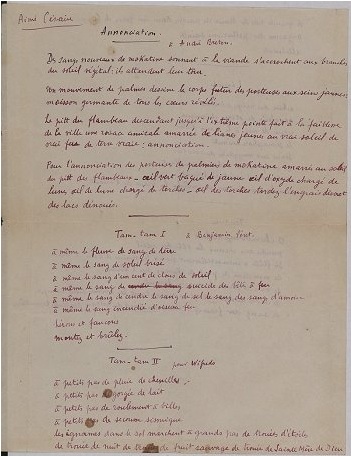 Aimé Césaire
Annonciation.
à André Breton.
Des sangs nouveaux de mokatine sonnant à la viande s'accrochent aux branches
du soleil végétal ; ils attendent leur tour.
Un mouvement de palmes dessine le corps futur des porteuses aux seins jaunes
moisson germante de tous les cœurs révélés.
Le pitt du flambeau descendant jusqu'à l'extrême pointe fait à la faiblesse
de la ville une rosace amicale amarrée de lianes jeunes au vrai soleil de
vrai feu de terre vraie : annonciation.
Pour l'annonciation des porteuses de palmiers de mokatine amarrés au soleil
du pitt du flambeau - œil vert bagué de jaune œil d'oxyde chargé de
lune œil de lune chargé de torches - œil des torches tordez l'engrais discret
des lacs dénoués.
Tam-tam I
à Benjamin Péret.
à même le fleuve de sang de terre
à même le sang de soleil brisé
à même le sang d'un cent de clous de soleil
à même le sang de suicide des bêtes à feu
à même le sang de cendre le sang de sel le sang des sangs d'amour
à même le sang incendié d'oiseau feu
hérons et faucons
montez et brûlez.
Tam-tam II
pour Wifredo
à petits pas de pluie de chenilles
à petits pas de gorgée de lait
à petits pas de roulement à billes
à petits pas de secousse sismique
les ignames dans le sol marchent à grands pas de trouées d'étoile
de trouée de nuit de trouée de Sainte Mère de Dieu